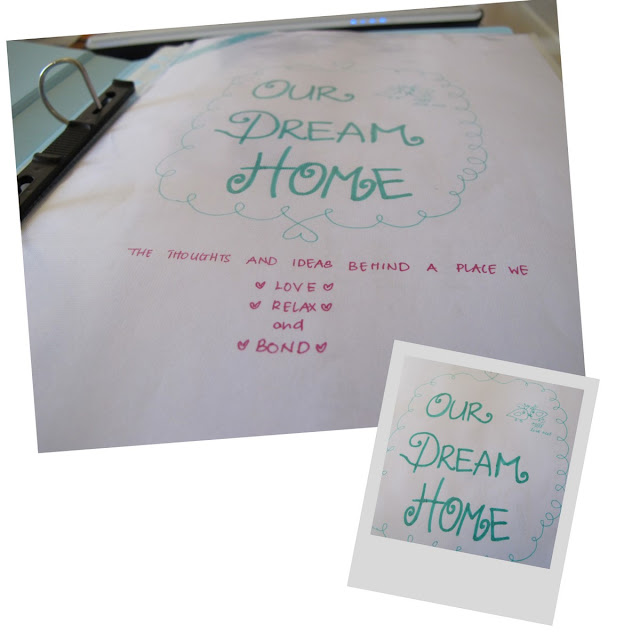 OUR
DREAM
HOME
THE THOUGHTS AND IDEAS BEHIND A PLACE WE
LOVE
RELAX
and
BOND
OUR
DREAM
HOME